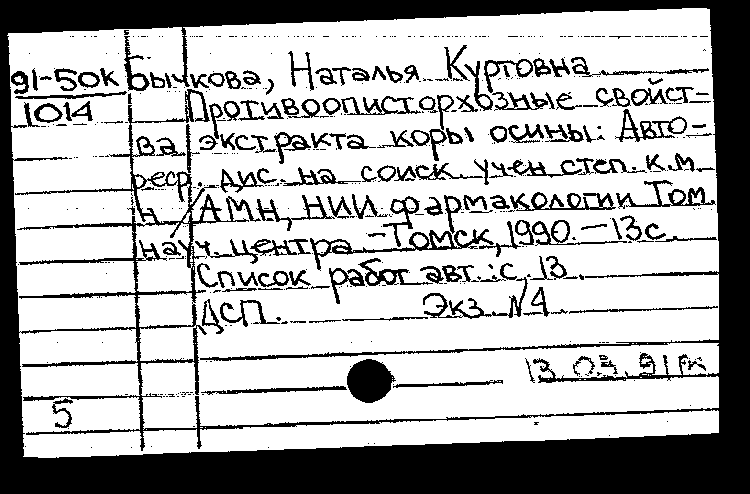 91-50к Бычкова, Наталья Куртовна.
1014 Противоописторхозные свойст-
ва экстракта коры осины: Авто-
реф. дис. на соиск. учен степ. к.м.
н. / АМН, НИИ фармакологии Том.
науч. центра. - Томск, 1990. - 13 с.
Список работ авт.: с. 13.
ДСП. Экз. N4
13.03.91
5